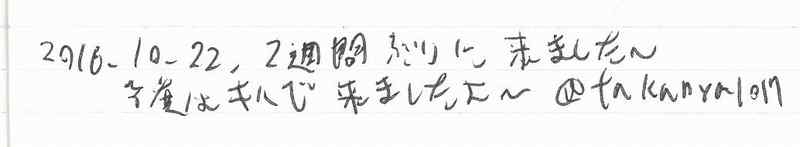 2016-10-22, 2週間ぶりに 来ました〜
今度は 来ましたよ〜